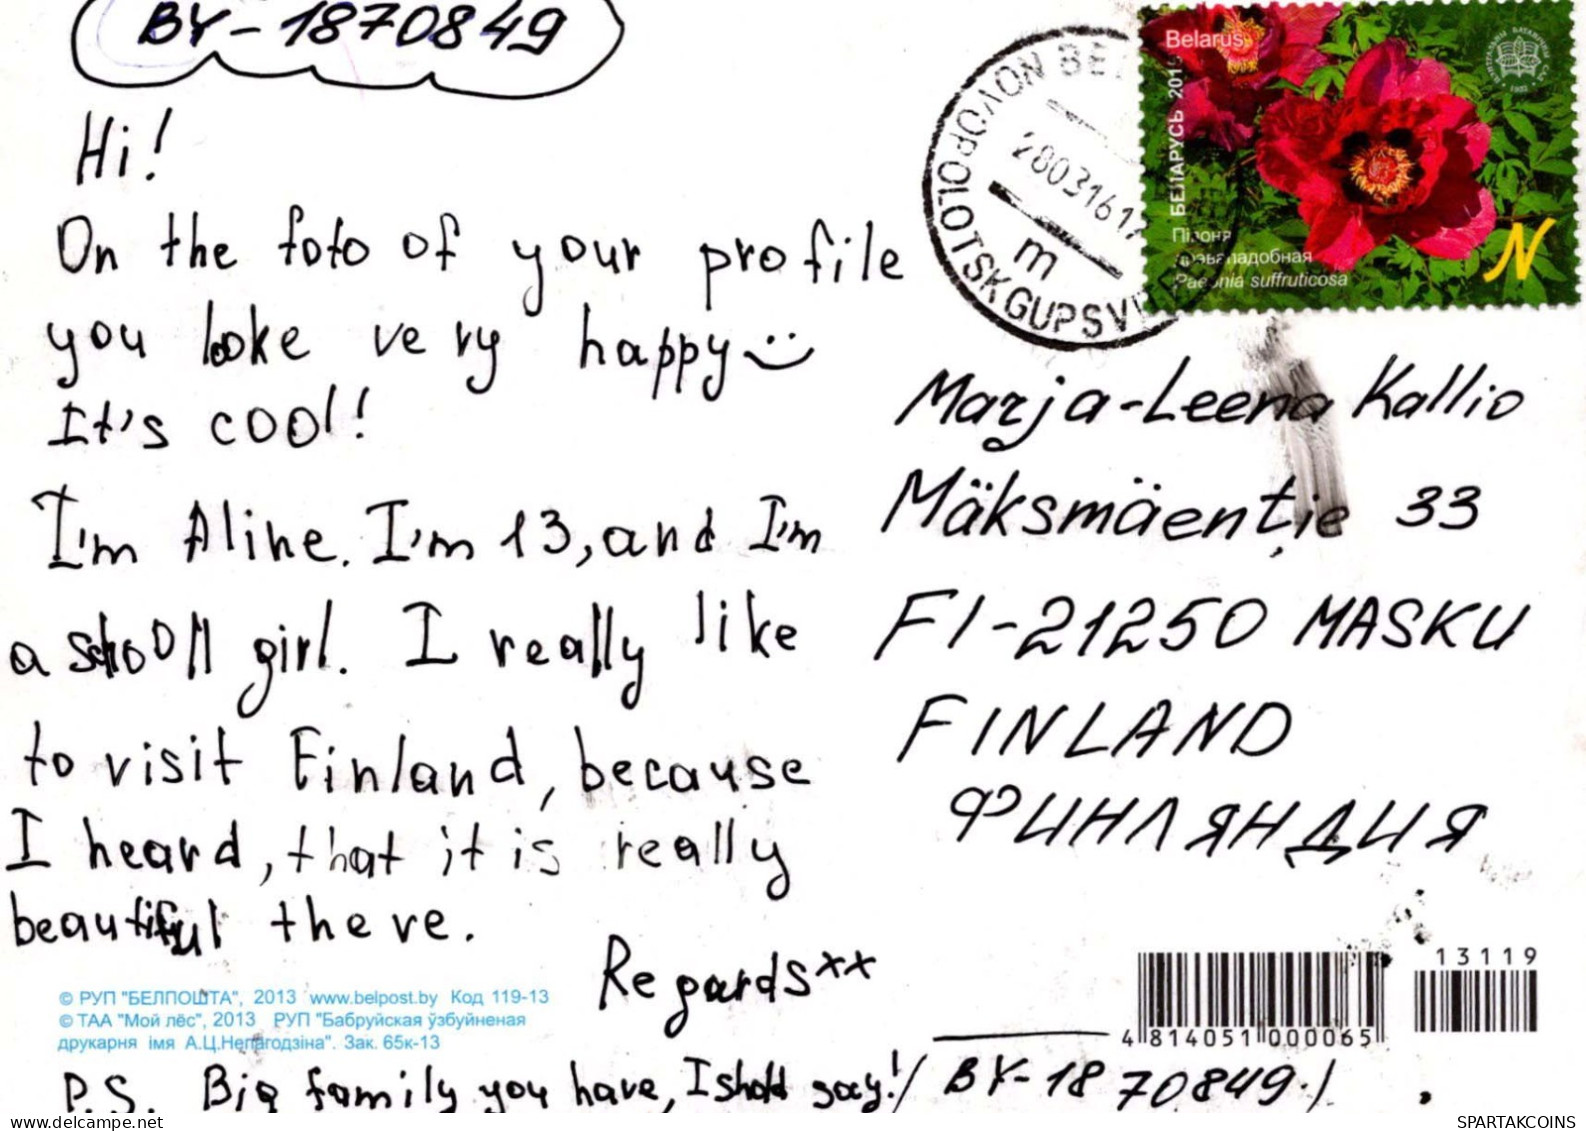 BY-1870849
Hi!
On the foto of your profile
you looke very happy
It's cool!
I'm Aline. I'm 13, and I'm
a shooll girl. I really like
to visit Finland, because
I heard, that it is really
beautiful there.
Regards xx
© РУП "БЕЛПОШТА", 2013 www.belpost.by Код 119-13
© ТАА "Мой лёс", 2013 РУП "Бабруйская ўзбуйненая
друкарня імя А.Ц.Непагодзіна". Зак. 65к-13
P.S. Big family you have, I shold say! / BY-1870849./
NOVOPOLOTSKGUPSV
280316 17
m
Belarus
БЕЛАРУСЬ 201
Півоня
дрэвападобная
Paeonia suffruticosa
N
Marja-Leena Kallio
Mäksmäentie 33
FI-21250 MASKU
FINLAND
ФИНЛЯНДИЯ
13119
4 814051 000065
delcampe.net
SPARTAKCOINS